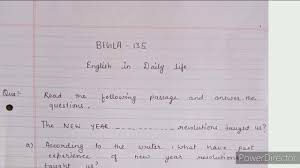 BEGLA - 135
English in Daily Life
Que:- Read the following passage and answer the
questions.
The NEW YEAR ............... revolutions taught us?
a) According to the writer, what have past
experience of new year revolution
taught us?
PowerDirector